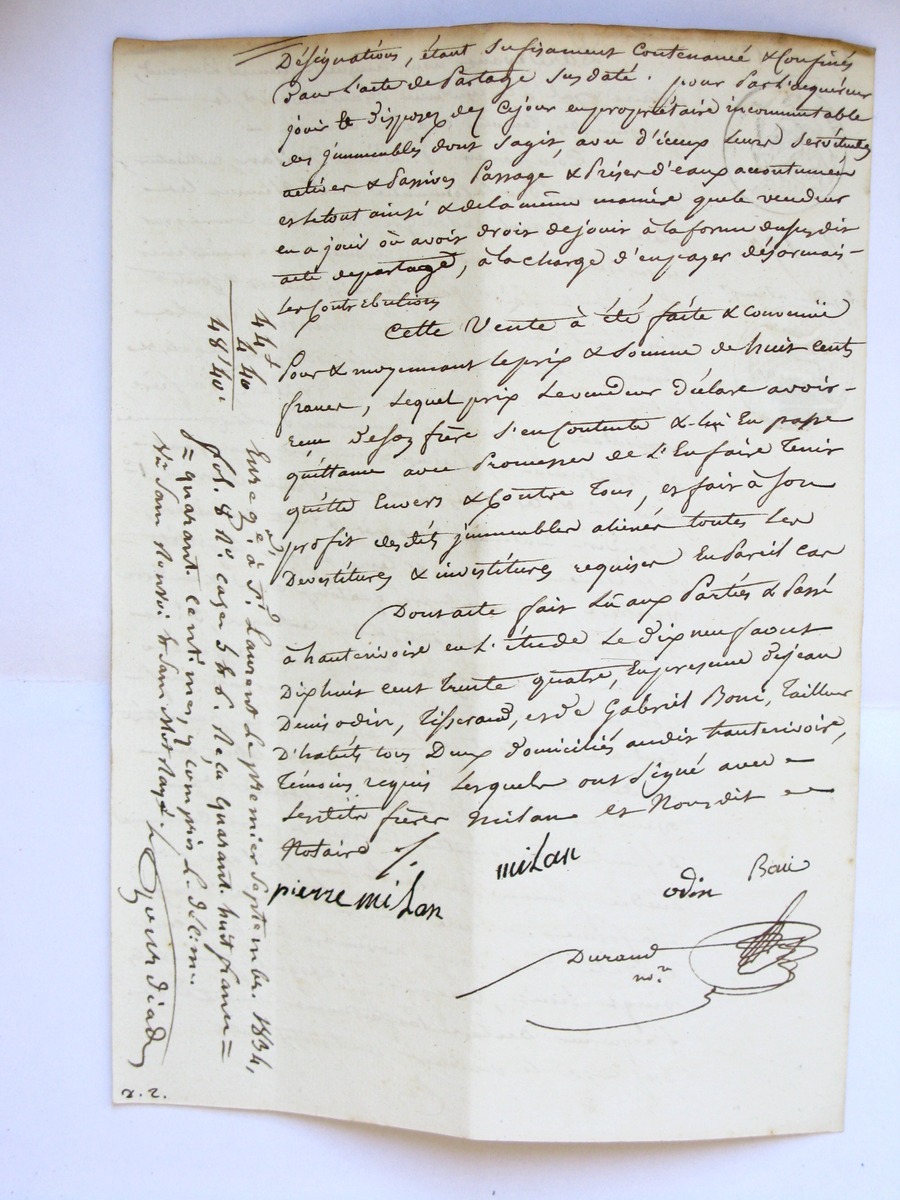 Désignations, étant sufisament Contenancé & Confinés
dans l'acte de Partage susdaté. pour Par L'aquéreur
jouir & disposer dez cejour en propriétaire incommutable
des jmmeubles dont s'agit, avec d'iceux leurs servitudes
actives & Passives Passage & Prises d'eaux accoutumées
et le tout ainsi & de la même manière que le vendeur
en a joui où avoit droit de jouir à la forme dususdit
acte departage, à la charge d'en payer désormais -
Les contributions
Cette Vente à été faite & convenüe
Pour & moyennant le prix & Somme de huit cents
francs, Lequel prix Levendeur déclare avoir -
reçu desoz frère s'en Contente & lui En passe
quittance avec Promesse de L'En faire Tenir
quitte Envers & Contre Tous, et fait à son
profit desdits jmmeubles aliénés toutes Les
Devestitures & investitures requises En Pareil cas
Dont acte fait Lû aux Parties & Passé
à hauterivoire en L'étude Le dix neuf aout
Dixhuit cent trente quatre, En presence de jean
Denis odin, Tisserand, et de Gabriel Boni, Tailleur
D'habits tous Deux domiciliés audit hauterivoire,
Témoins requis Lesquels ont signé avec =
Lesdits frères Milan et Nousdit =
Notaire
pierre miLan
miLan
odin
Boni
Durand
nore
44f
4 40
48f 40c
Enregé à St Laurent Le premier Septembre 1834,
fol. 8 Ro case 5 & 6. Reçu quarante huit francs =
= quarante centimes, y compris L. décime.
2.2.